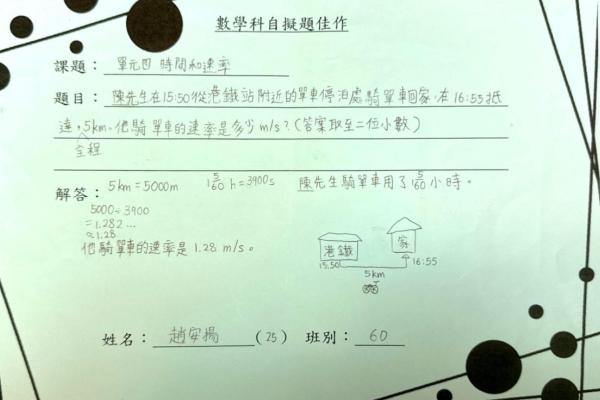 數學科自擬題佳作
課題：單元四 時間和速率
題目：陳先生在15:50從港鐵站附近的單車停泊處騎單車回家，在16:55抵
達，全程5km。他騎單車的速率是多少 m/s？(答案取至二位小數)
解答：5km = 5000m 1 5/60 h = 3900s 陳先生騎單車用了 1 5/60 小時。
5000÷3900
=1.282...
≈1.28
他騎單車的速率是 1.28 m/s。
港鐵 家
15:50 16:55
5km
姓名：趙安揚 (25) 班別：6D